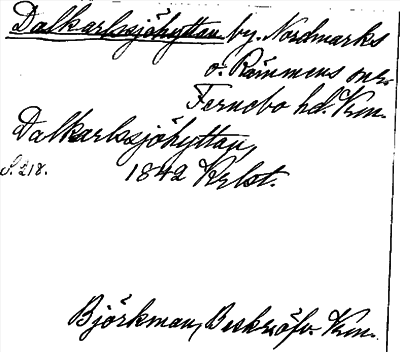 Dalkarlssjöhyttan by. Nordmarks
o. Rämmens snr.
Fernebo hd. Krm.
Dalkarlssjöhyttan,
S. 218. 1842 Krlst.
Björkman, Beskriöfv. Krm.